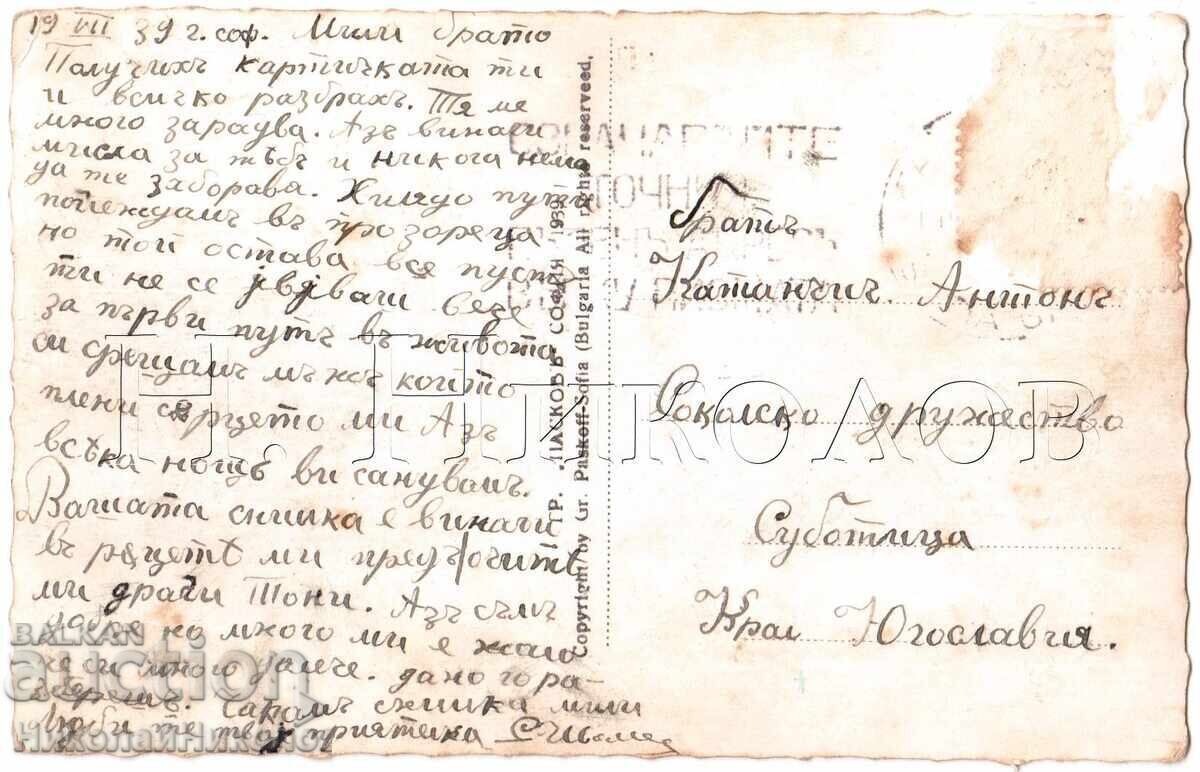 19 VII 39 г. соф. Мили брато
Получихъ картичката ти
и всичко разбрахъ. Тя ме
много зарадва. Азъ винаги
мисла за тъбъ и никога нема
да те заборава. Хилядо пути
поглеждамъ въ прозореца
но той остава все пусть
ти не се јвјваги вече
за първи путъ въ живота
си срещамъ мъжъ който
плени сърцето ми Азъ
всѣка нощь ви санувамъ.
Вашата снимка е винаги
въ рѫцетѣ ми предъ очитѣ
ми драги Тони. Азъ съмъ
добре но много ми е жало
че си много далече. дано го ра-
Сакамъ снимка мили
Люби те твојa приятека
ГР. ПАСКОВЪ СОФИЯ - 1939
Copyright by Gr. Paskoff-Sofia (Bulgaria All rights reserveed,
братъ
Катанчич Антонъ
Соколско дружество
Суботица
Крал Югославия.
Н. Николов
BALKAN
auction
НиколайНиколов